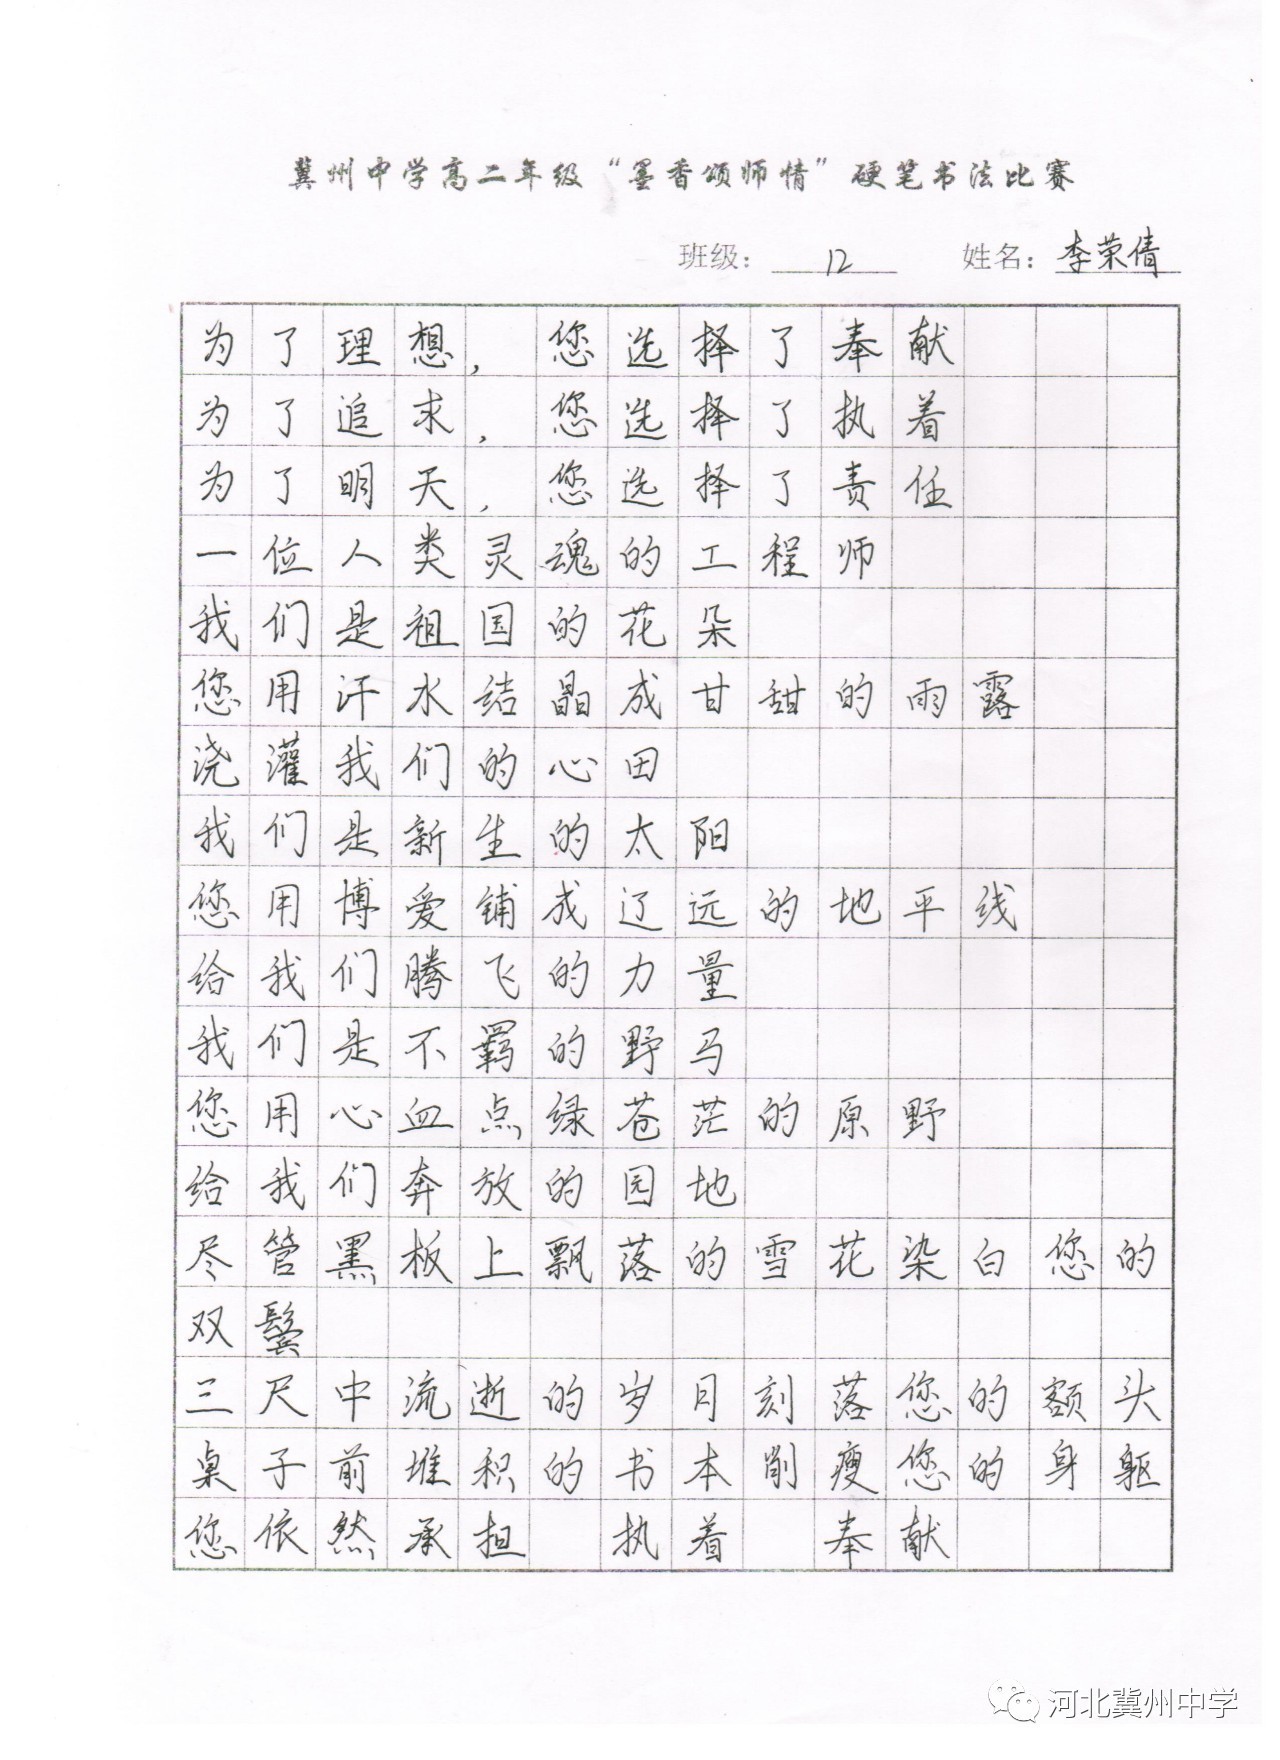 冀州中学高二年级“墨香颂师情”硬笔书法比赛
班级: 12 姓名: 李荣倩
为了理想,您选择了奉献
为了追求,您选择了执着
为了明天,您选择了责任
一位人类灵魂的工程师
我们是祖国的花朵
您用汗水结晶成甘甜的雨露
浇灌我们的心田
我们是新生的太阳
您用博爱铺成辽远的地平线
给我们腾飞的力量
我们是不羁的野马
您用心血点绿苍茫的原野
给我们奔放的园地
尽管黑板上飘落的雪花染白您的
双鬓
三尺中流逝的岁月刻落您的额头
桌子前堆积的书本削瘦您的身躯
您依然承担 执着 奉献
河北冀州中学